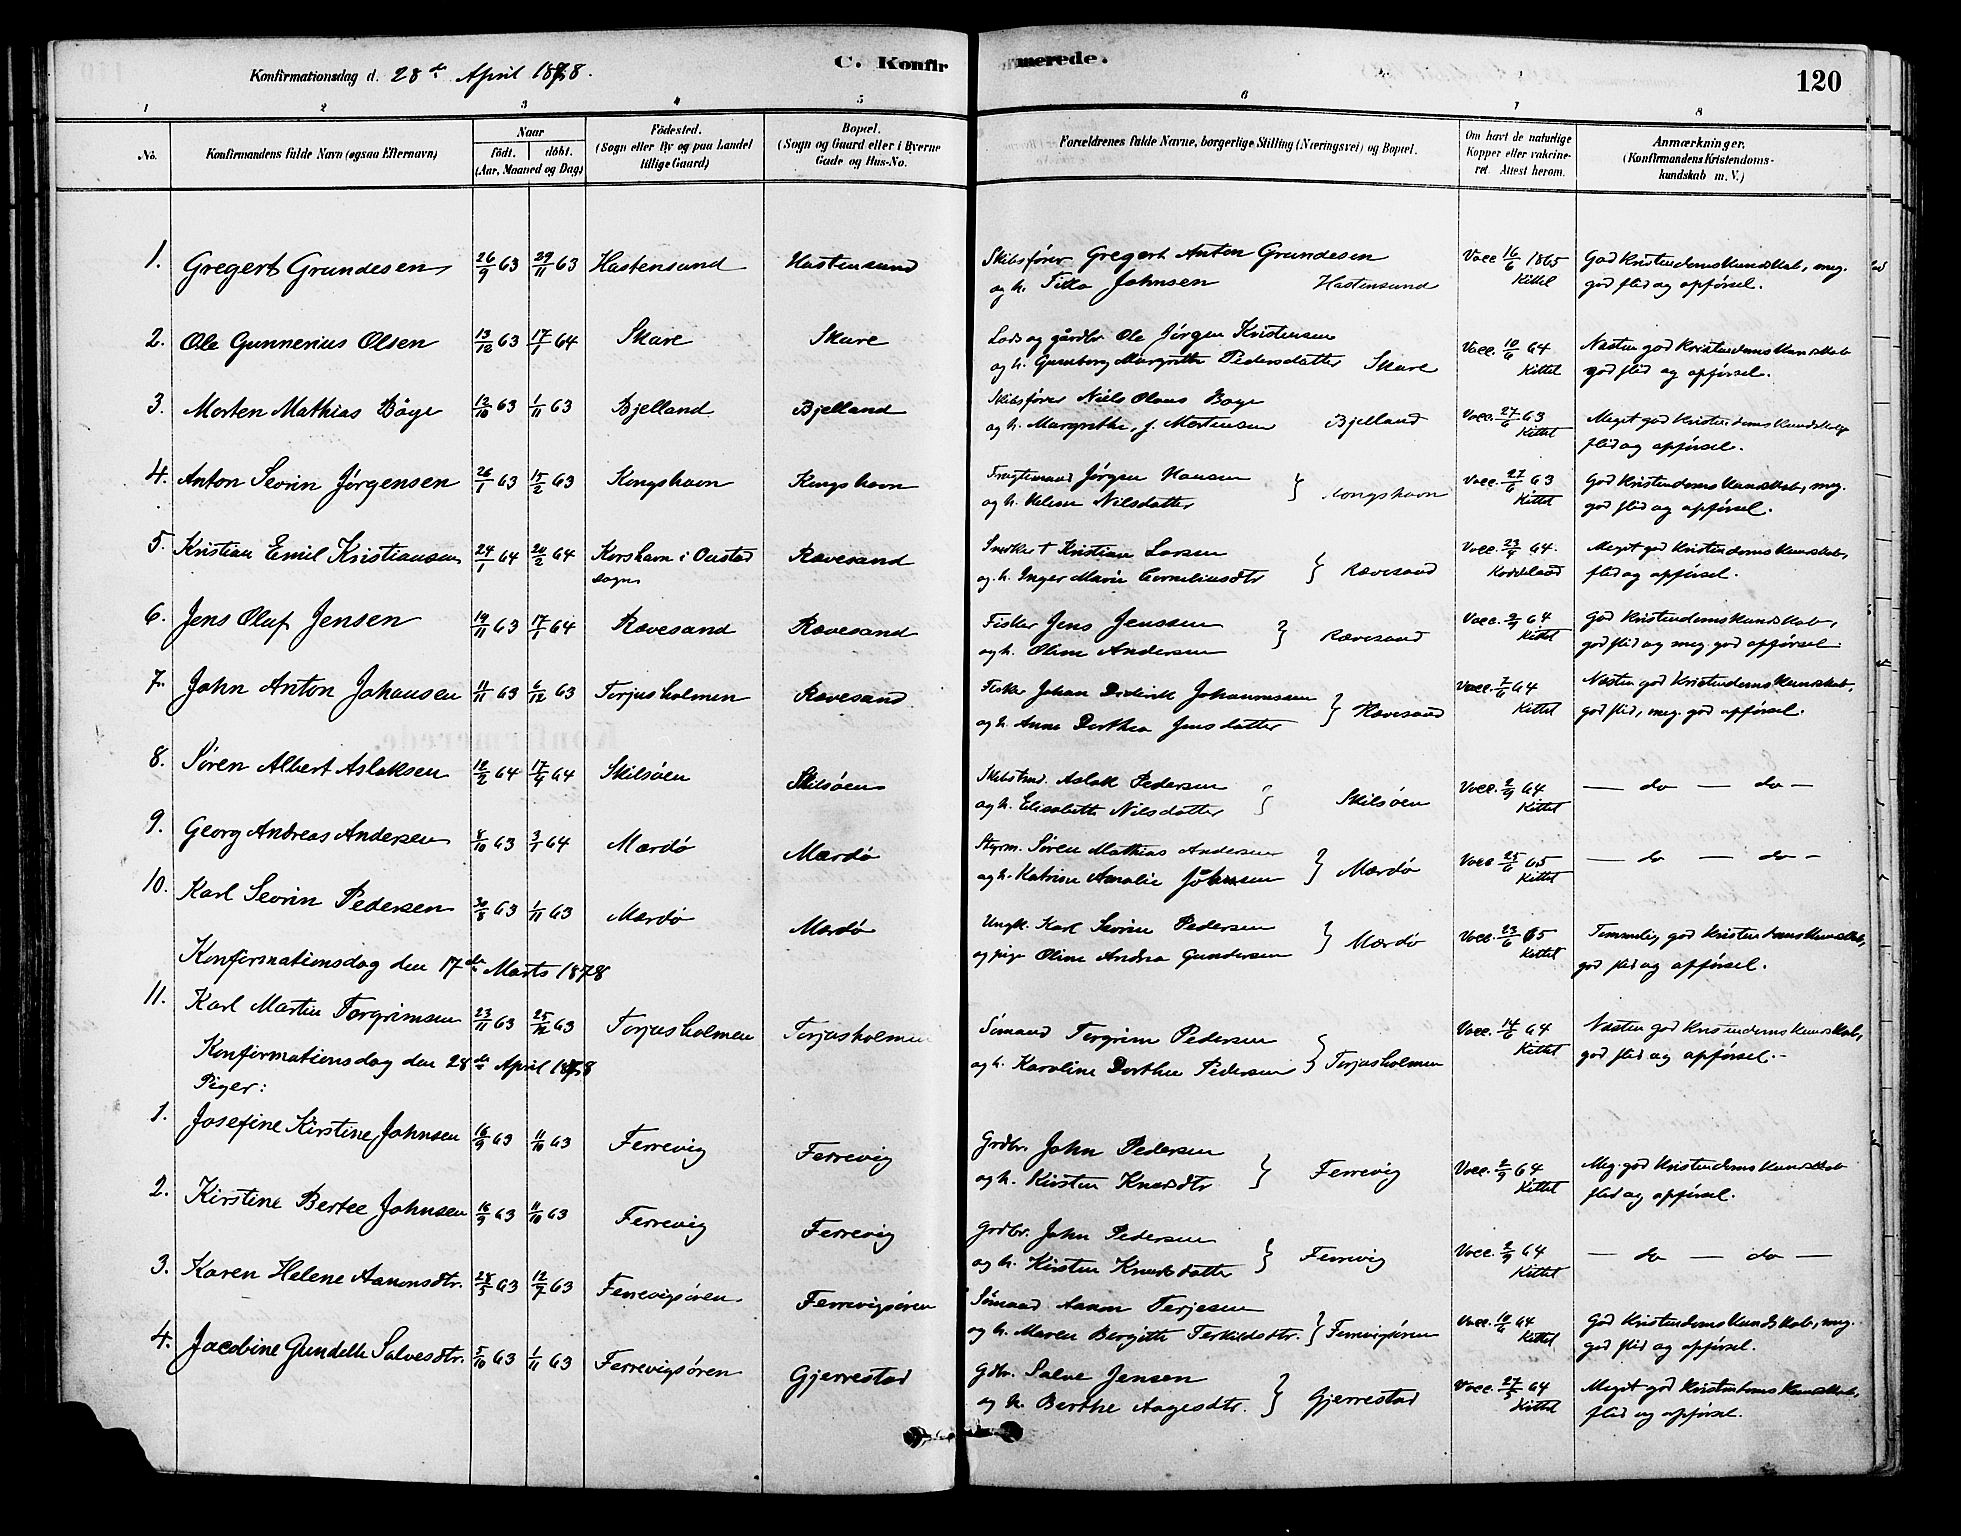 C. Konfirmerede.
120
Konfirmationsdag d. 28de April 1878.
1 2 3 4 5 6 7 8
No. Konfirmandens fulde Navn (ogsaa Efternavn) Naar født. døbt. (Aar, Maaned og Dag) Födested. (Sogn eller By og paa Landet tillige Gaard) Bopæl. (Sogn og Gaard eller i Byerne Gade og Hus-No. Forældrenes fulde Navne, borgerlige Stilling (Næringsvei) og Bopæl. Om havt de naturlige Kopper eller vakcineret. Attest herom. Anmærkninger. (Konfirmandens Kristendomskundskab m. V.)
1. Gregert Grundesen 26/9 63 29/11 63 Hastensund Hastensund Skibsfører Gregert Anton Grundesen Vacc. 16/6 1865 God Kristendomskundskab, meg.
og h. Johnsen Hastensund Kittel god flid og opførsel.
2. Ole Gunnerius Olsen 13/12 63 17/1 64 Skare Skare Lods og gårdbr. Ole Jørgen Kristensen Vacc. 10/6 64 Næsten god Kristendomskundskab
og h. Gunborg Margrethe Pedersdatter Skare Kittel god flid og opførsel.
3. Morten Mathias Bøye 12/10 63 1/11 63 Bjelland Bjelland Skibsfører Niels Olaus Boye Vacc. 27/6 63 Meget god Kristendomskundskab
og h. Margrethe, f. Mortensen Bjelland Kittel flid og opførsel.
4. Anton Severin Jørgensen 26/1 63 15/2 63 Kongshavn Kongshavn Jørgen Hansen Vacc. 27/6 63 God Kristendomskundskab, meg.
og h. Helene Nilsdatter Kongshavn Kittel god flid og opførsel.
5. Kristian Emil Kristiansen 24/1 64 20/2 64 Korshavn i Onstad Rævesand Snedker † Kristian Larsen Vacc. 23/9 64. Meget god Kristendomskundskab,
sogn og h. Inger Marie Corneliusdtr Rævesand flid og opførsel.
6. Jens Oluf Jensen 19/11 63 17/1 64 Rævesand Rævesand Fisker Jens Jenssen Vacc. 2/9 64 God Kristendomskundskab,
og h. Oline Andersen Rævesand Kittel god flid og meg. god opførsel.
7. John Anton Johansen 11/11 63 6/12 63 Torjusholmen Rævesand Fisker Johan Diderik Johannessen Vacc. 7/6 64 Næsten god Kristendomskundskab,
og h. Anne Dorthea Jensdatter Rævesand Kittel god flid, meg. god opførsel.
8. Søren Albert Aslaksen 12/2 64 17/4 64 Skilsøen Skilsøen Skibstmd. Aslak Pedersen Vacc. 2/9 64 — do — do —
og h. Elisabeth Nilsdatter Skilsøen Kittel
9. Georg Andreas Andersen 8/10 63 3/1 64 Mærdø Mærdø Styrm. Søren Mathias Andersen Vacc 25/6 65 — do — do —
og h. Katrine Amalie Johnsen Mærdø Kittel
10. Karl Severin Pedersen 30/8 63 1/11 63 Mærdø Mærdø Ungk. Karl Severin Pedersen Vacc. 23/6 65 Temmelig god Kristendomskundskab,
og pige Oline Andrea Gundersen Mærdø Kittel god flid og opførsel.
Konfirmationsdag den 17de Marts 1878
11. Karl Martin Torgrimsen 23/11 63 25/12 63 Torjusholmen Torjusholmen Sømand Torgrim Pedersen Vacc. 14/6 64 Næsten god Kristendomskundskab,
og h. Karoline Dorthea Pedersen Torjusholmen Kittel god flid og opførsel.
Konfirmationsdag den 28de April 1878
Piger:
1. Josefine Kirstine Johnsen 16/9 63 11/10 63 Ferrevig Ferrevig Grdbr. John Pedersen Vacc. 2/9 64 Meg. god Kristendomskundskab
og h. Kirsten Knudsdtr Ferrevig Kittel flid og opførsel.
2. Kirstine Bertee Johnsen 16/9 63 11/10 63 Ferrevig Ferrevig Grdbr. John Pedersen Vacc. 2/9 64 — do — do —
og h. Kirsten Knudsdatter Ferrevig Kittel
3. Karen Helene Aanonsdtr. 28/5 63 12/7 63 Ferrevigsøren Ferrevigsøren Sømand Aanon Terjesen Vacc. 10/6 64 God Kristendomskundskab, meg.
og h. Maren Birgitte Terkildsdtr. Ferrevigsøren Kittel god flid og opførsel.
4. Jacobine Gundelle Salvesdtr. 5/10 63 1/11 63 Ferrevigsøren Gjerrestad Gdbr. Salve Jensen Vacc. 27/5 64 Meget god Kristendomskundskab,
og h. Berthe Aagesdtr. Gjerrestad Kittel flid og opførsel.